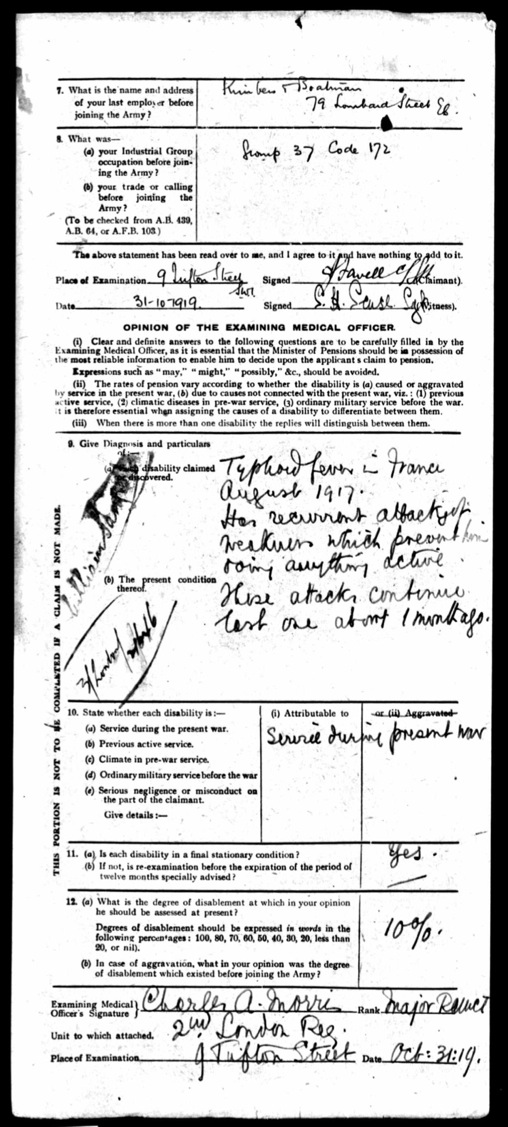 7. What is the name and address
of your last employer before
joining the Army?
Kimber & Boatman
79 Lombard Street EC.
8. What was—
(a) your Industrial Group
occupation before join-
ing the Army?
(b) your trade or calling
before joining the
Army?
(To be checked from A.B. 439,
A.B. 64, or A.F.B. 103.)
Group 37 Code 172
The above statement has been read over to me, and I agree to it and have nothing to add to it.
Place of Examination 9 Tufton Street Signed (Claimant).
Date 31-10-1919 Signed (Witness).
OPINION OF THE EXAMINING MEDICAL OFFICER.
(i) Clear and definite answers to the following questions are to be carefully filled in by the
Examining Medical Officer, as it is essential that the Minister of Pensions should be in possession of
the most reliable information to enable him to decide upon the applicant's claim to pension.
Expressions such as "may," "might," "possibly," &c., should be avoided.
(ii) The rates of pension vary according to whether the disability is (a) caused or aggravated
by service in the present war, (b) due to causes not connected with the present war, viz.: (1) previous
active service, (2) climatic diseases in pre-war service, (3) ordinary military service before the war.
it is therefore essential when assigning the causes of a disability to differentiate between them.
(iii) When there is more than one disability the replies will distinguish between them.
9. Give Diagnosis and particulars
of:—
(a) disability claimed
or discovered.
Typhoid fever in France
August 1917.
Has recurrent attacks of
weakness which prevent him
doing anything active.
(b) The present condition
thereof.
These attacks continue
last one about 1 month ago.
THIS PORTION IS NOT TO BE COMPLETED IF A CLAIM IS NOT MADE.
10. State whether each disability is:—
(i) Attributable to
or (ii) Aggravated
(a) Service during the present war.
(b) Previous active service.
(c) Climate in pre-war service.
(d) Ordinary military service before the war
(e) Serious negligence or misconduct on
the part of the claimant.
Give details:—
Service during present war
11. (a) Is each disability in a final stationary condition?
Yes.
(b) If not, is re-examination before the expiration of the period of
twelve months specially advised?
12. (a) What is the degree of disablement at which in your opinion
he should be assessed at present?
Degrees of disablement should be expressed in words in the
following percentages: 100, 80, 70, 60, 50, 40, 30, 20, less than
20, or nil).
10%.
(b) In case of aggravation, what in your opinion was the degree
of disablement which existed before joining the Army?
Examining Medical
Officer's Signature Charles A. Morris Rank Major RAMCT
Unit to which attached. 2nd London Reg.
Place of Examination 9 Tufton Street Date Oct: 31:19.